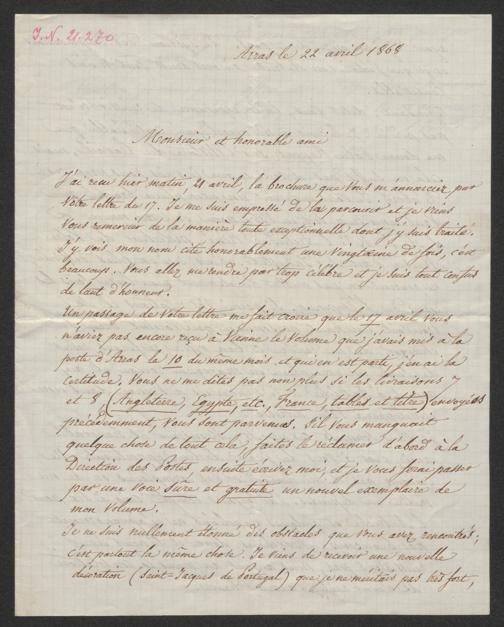 I.N. 21.270
Arras le 22 avril 1868
Monsieur et honorable ami
J'ai reçu hier matin, 21 avril, la brochure que vous m'annonciez par
votre lettre du 17. Je me suis empressé de la parcourir et je viens
vous remercier de la manière toute exceptionnelle dont j'y suis traité.
J'y vois mon nom cité honorablement une vingtaine de fois, c'est
beaucoup. Vous allez me rendre par trop célèbre et je suis tout confus
de tant d'honneur.
Un passage de votre lettre me fait croire que le 17 avril vous
n'aviez pas encore reçu à Vienne le volume que j'avais mis à la
poste d'Arras le 10 du même mois et qui en est parti, j'en ai la
certitude. Vous ne me dites pas non plus si les livraisons 7
et 8 (Angleterre, Egypte, etc., France, tables et titre) envoyées
précédemment, vous sont parvenues. S'il vous manquait
quelque chose de tout cela, faites le réclamer d'abord à la
Direction des Postes, ensuite écrivez moi, et je vous ferai passer
par une voie sûre et gratuite un nouvel exemplaire de
mon volume.
Je ne suis nullement étonné des obstacles que vous avez rencontrés;
c'est partout la même chose. Je viens de recevoir une nouvelle
décoration (Saint-Jacques de Portugal) que je ne méritais pas très fort,